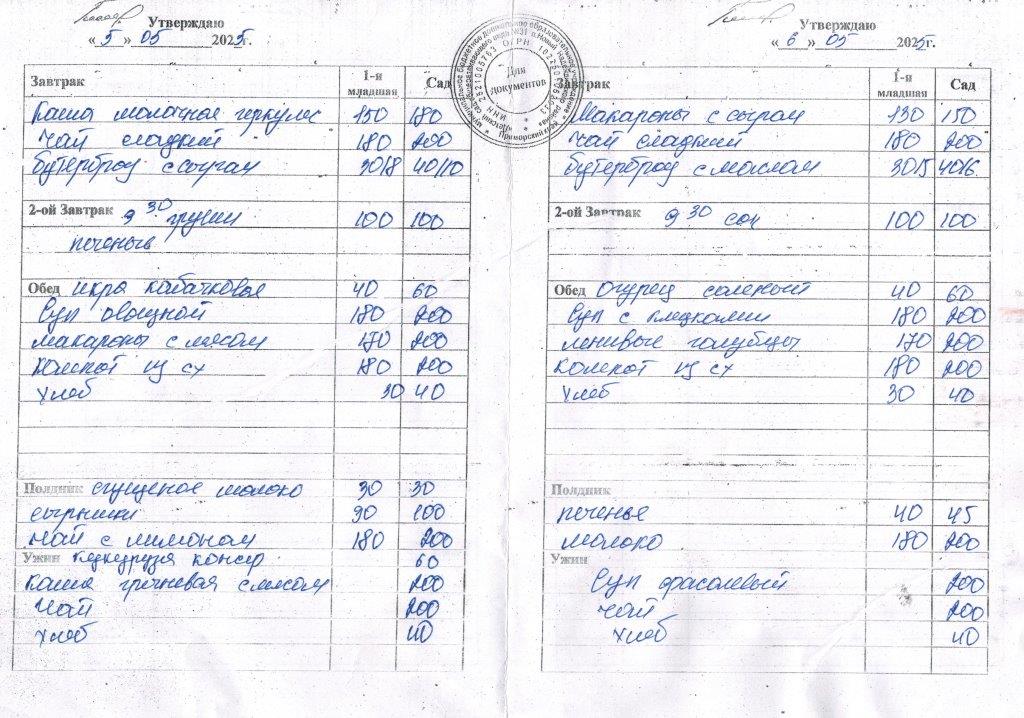 Утверждаю
« 5 » 05 2025г.
Завтрак 1-я младшая Сад
Каша молочное геркулес 150 180
Чай сладкий 180 200
бутерброд с сыром 30/8 40/10
2-ой Завтрак 9 30 груши 100 100
печенье
Обед икра кабачковая 40 60
Суп овощной 180 200
макароны с мясом 170 200
Компот из сх 180 200
хлеб 30 40
Полдник сгущеное молоко 30 30
сырники 90 100
чай с лимоном 180 200
Ужин Кукуруза консер 60
каша гречневая с мясом 200
Чай 200
хлеб 40
Для документов
Утверждаю
« 6 » 05 2025г.
Завтрак 1-я младшая Сад
Макароны с сыром 130 150
Чай сладкий 180 200
бутерброд с маслом 30/5 40/6
2-ой Завтрак 9 30 сок 100 100
Обед Огурец соленый 40 60
Суп с клецками 180 200
ленивые голубцы 170 200
Компот из сх 180 200
хлеб 30 40
Полдник
печенье 40 45
молоко 180 200
Ужин
Суп фасолевый 200
Чай 200
хлеб 40